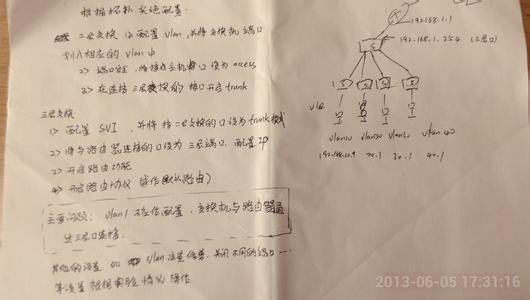 根据拓扑 实施配置
二层交换 1> 配置 vlan, 并将交换机端口
划入相应的 vlan 中
2> 端口 将接 主机 口设为 access
3> 在连接 三层交换的 接口开启 trunk
三层交换
1> 配置 SVI , 并将 接二层交换的口设为 trunk 模式
2> 将与路由器连接的口设为 三层端口, 配置 IP
3> 开启路由功能
4> 开启路由协议 (默认路由)
主要问题: vlan1 不应作配置, 交换机与路由器通
过三层口连接.
其他的设置 如 vlan 关闭不同的端口
等设置 根据实验 情况 操作
192.168.1.1
192.168.1.254 (三层口)
S
vlan10 vlan20 vlan30 vlan40
192.168.10.1 20.1 30.1 40.1
2013-06-05 17:31:16